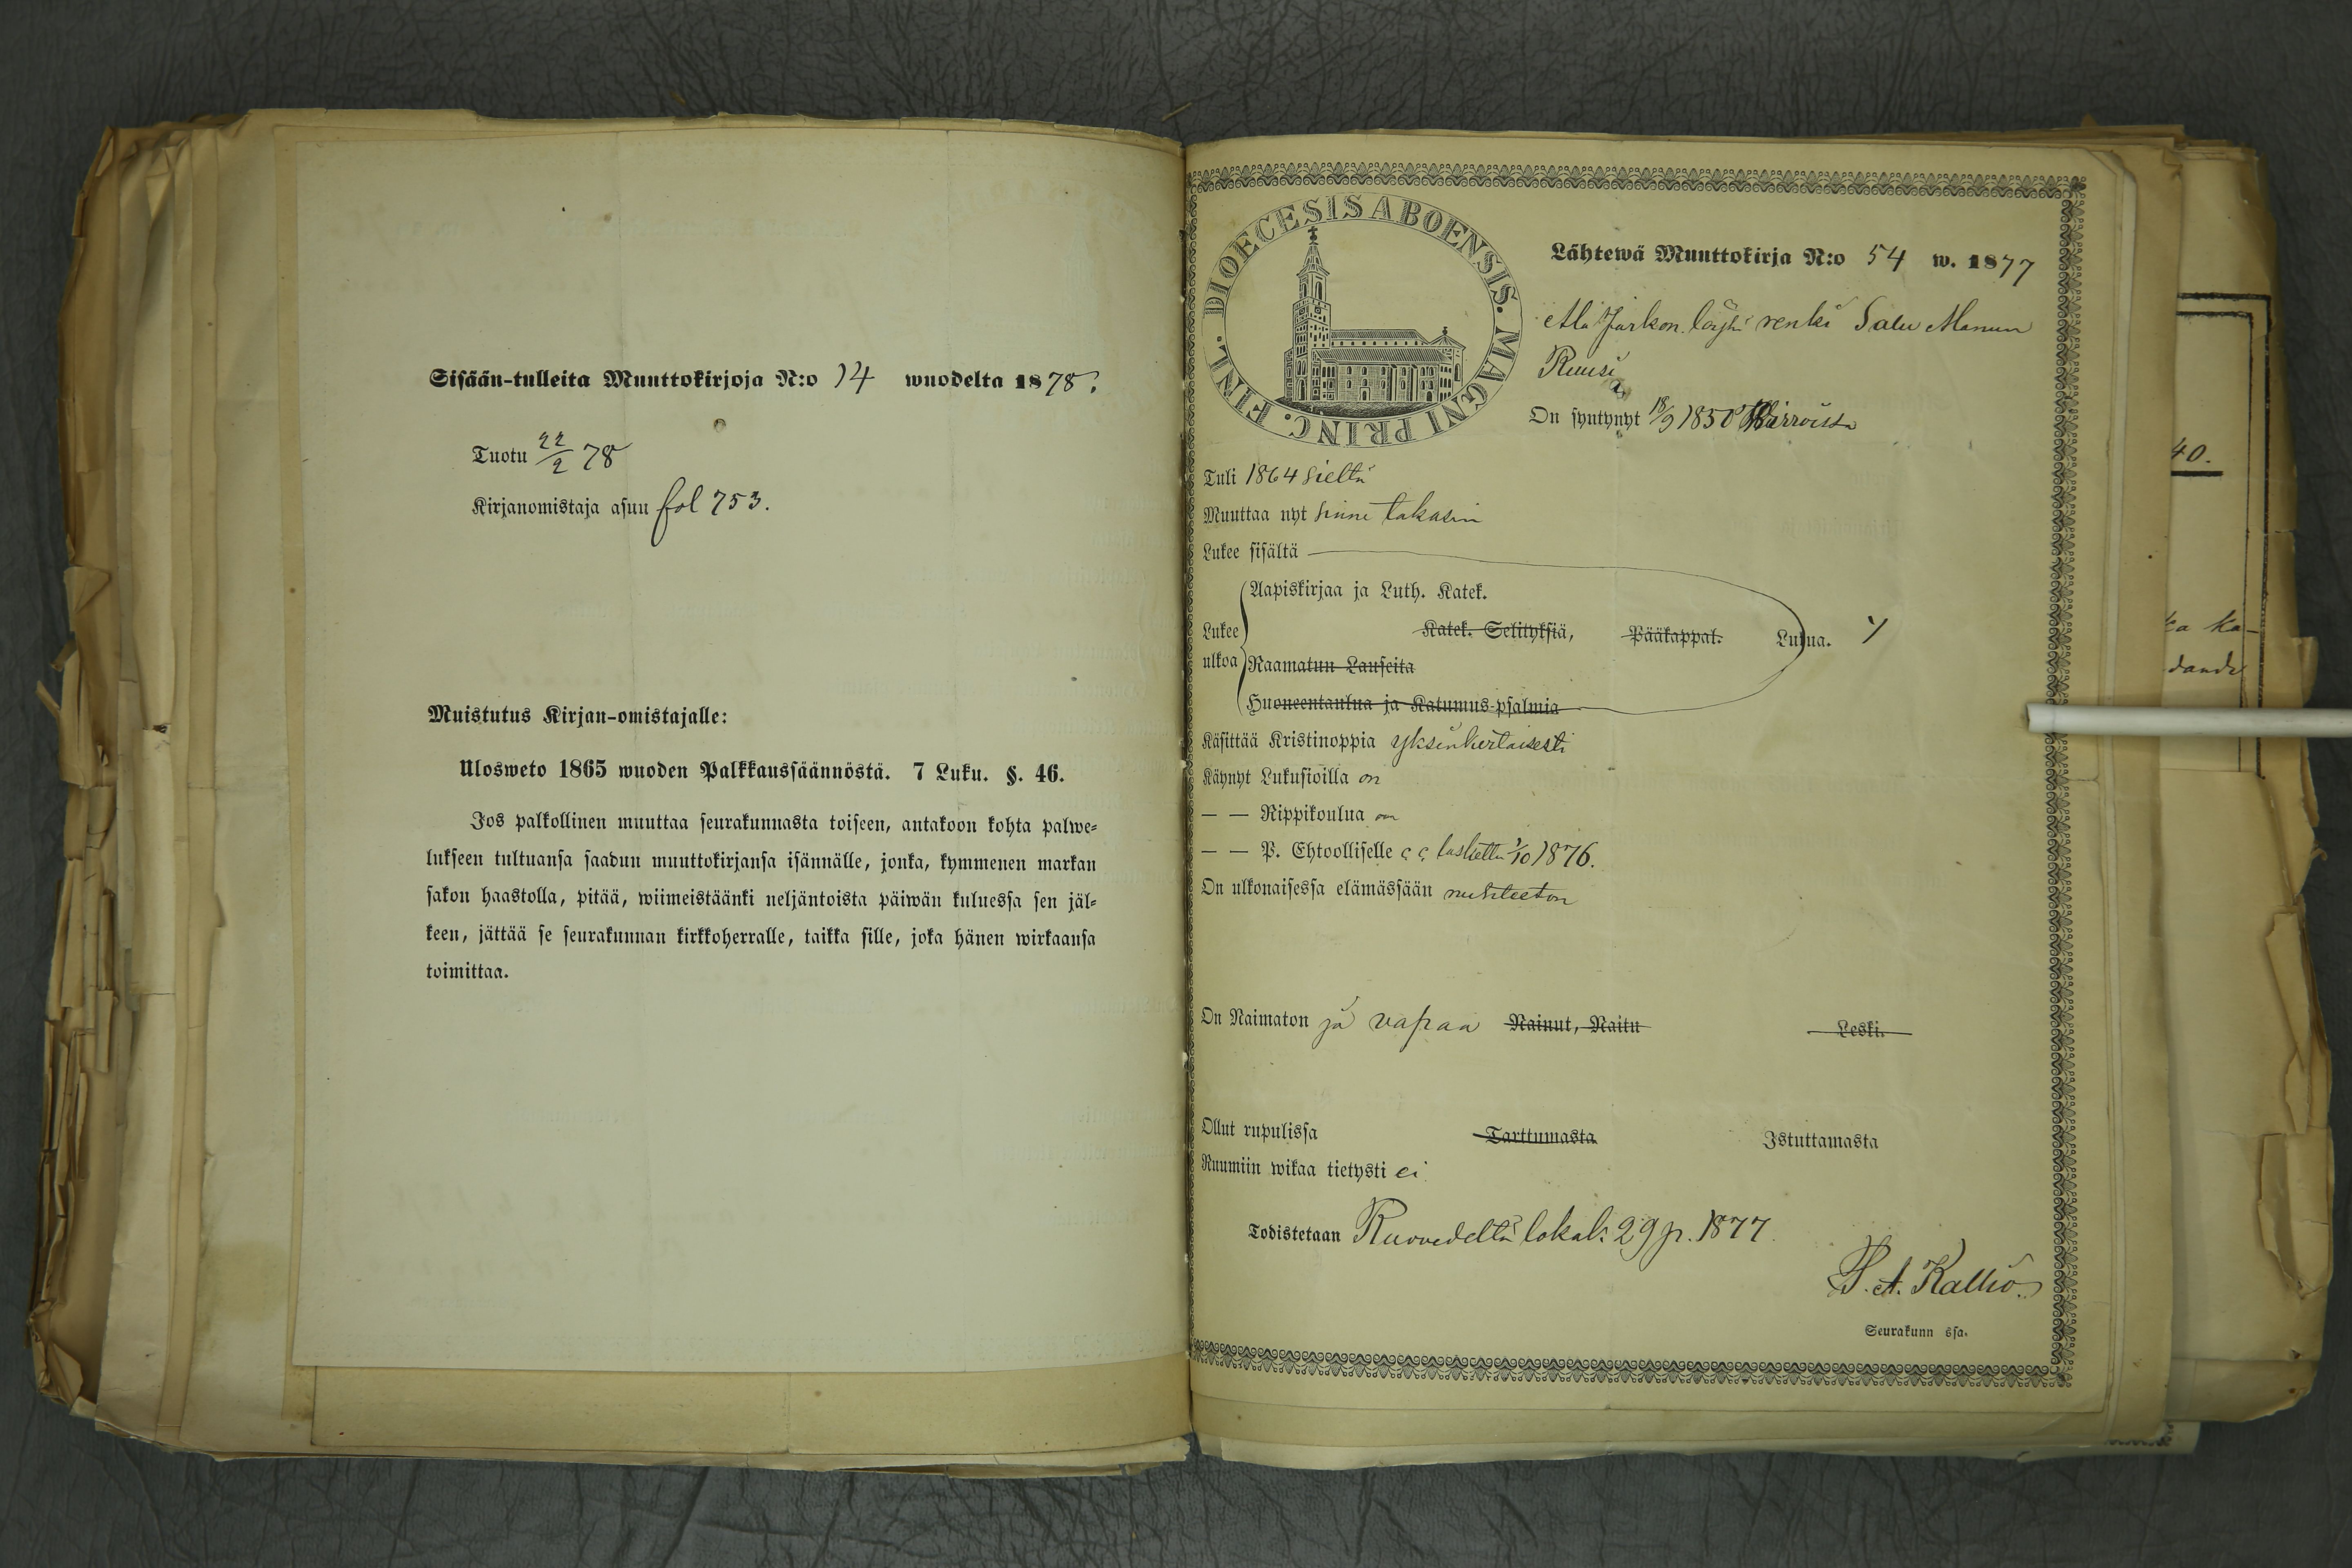 Sisään-tulleita Muuttokirjoja N:o 14 wuodelta 1878.
Tuotu 22/2 78
Kirjanomistaja asuu fol 753.
Muistutus Kirjan-omistajalle:
Ulosweto 1865 wuoden Palkkaussäännöstä. 7 Luku. §. 46.
Jos palkollinen muuttaa seurakunnasta toiseen, antakoon kohta palwe-
lukseen tultuansa saadun muuttokirjansa isännälle, jonka, kymmenen markan
sakon haastolla, pitää, wiimeistäänki neljäntoista päiwän kuluessa sen jäl-
keen, jättää se seurakunnan kirkkoherralle, taikka sille, joka hänen wirkaansa
toimittaa.
DIOECESIS ABOENSIS. MAGNI PRINC. FINL.
Lähtewä Muuttokirja N:o 54 w. 1877
renki Salu Manun
On syntynyt 18/9 1850 Wirroissa
Tuli 1864 sieltä
Muuttaa nyt sinne takasin
Lukee sisältä
Lukee ulkoa
Aapiskirjaa ja Luth. Katek.
Katek. Selityksiä, Pääkappal. Lukua.
Raamatun Lauseita
Huoneentaulua ja Katumus-psalmia
Käsittää Kristinoppia yksinkertaisesti
Käynyt Lukusioilla on
— — Rippikoulua on
— — P. Ehtoolliselle laskettu 7/10 1876.
On ulkonaisessa elämässään nuhteeton
On Naimaton ja vapaa Nainut, Naitu Leski.
Ollut rupulissa Tarttumasta Istuttamasta
Ruumiin wikaa tietysti ei
Todistetaan Ruovedeltä lokak: 29 p. 1877.
A. Kallio.
Seurakunn ssa.
40.
ka ka-